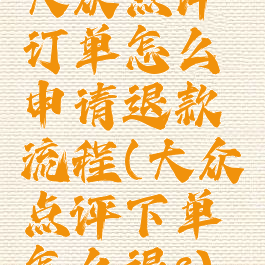 大众点评
订单怎么
申请退款
流程(大众
点评下单
怎么退?)